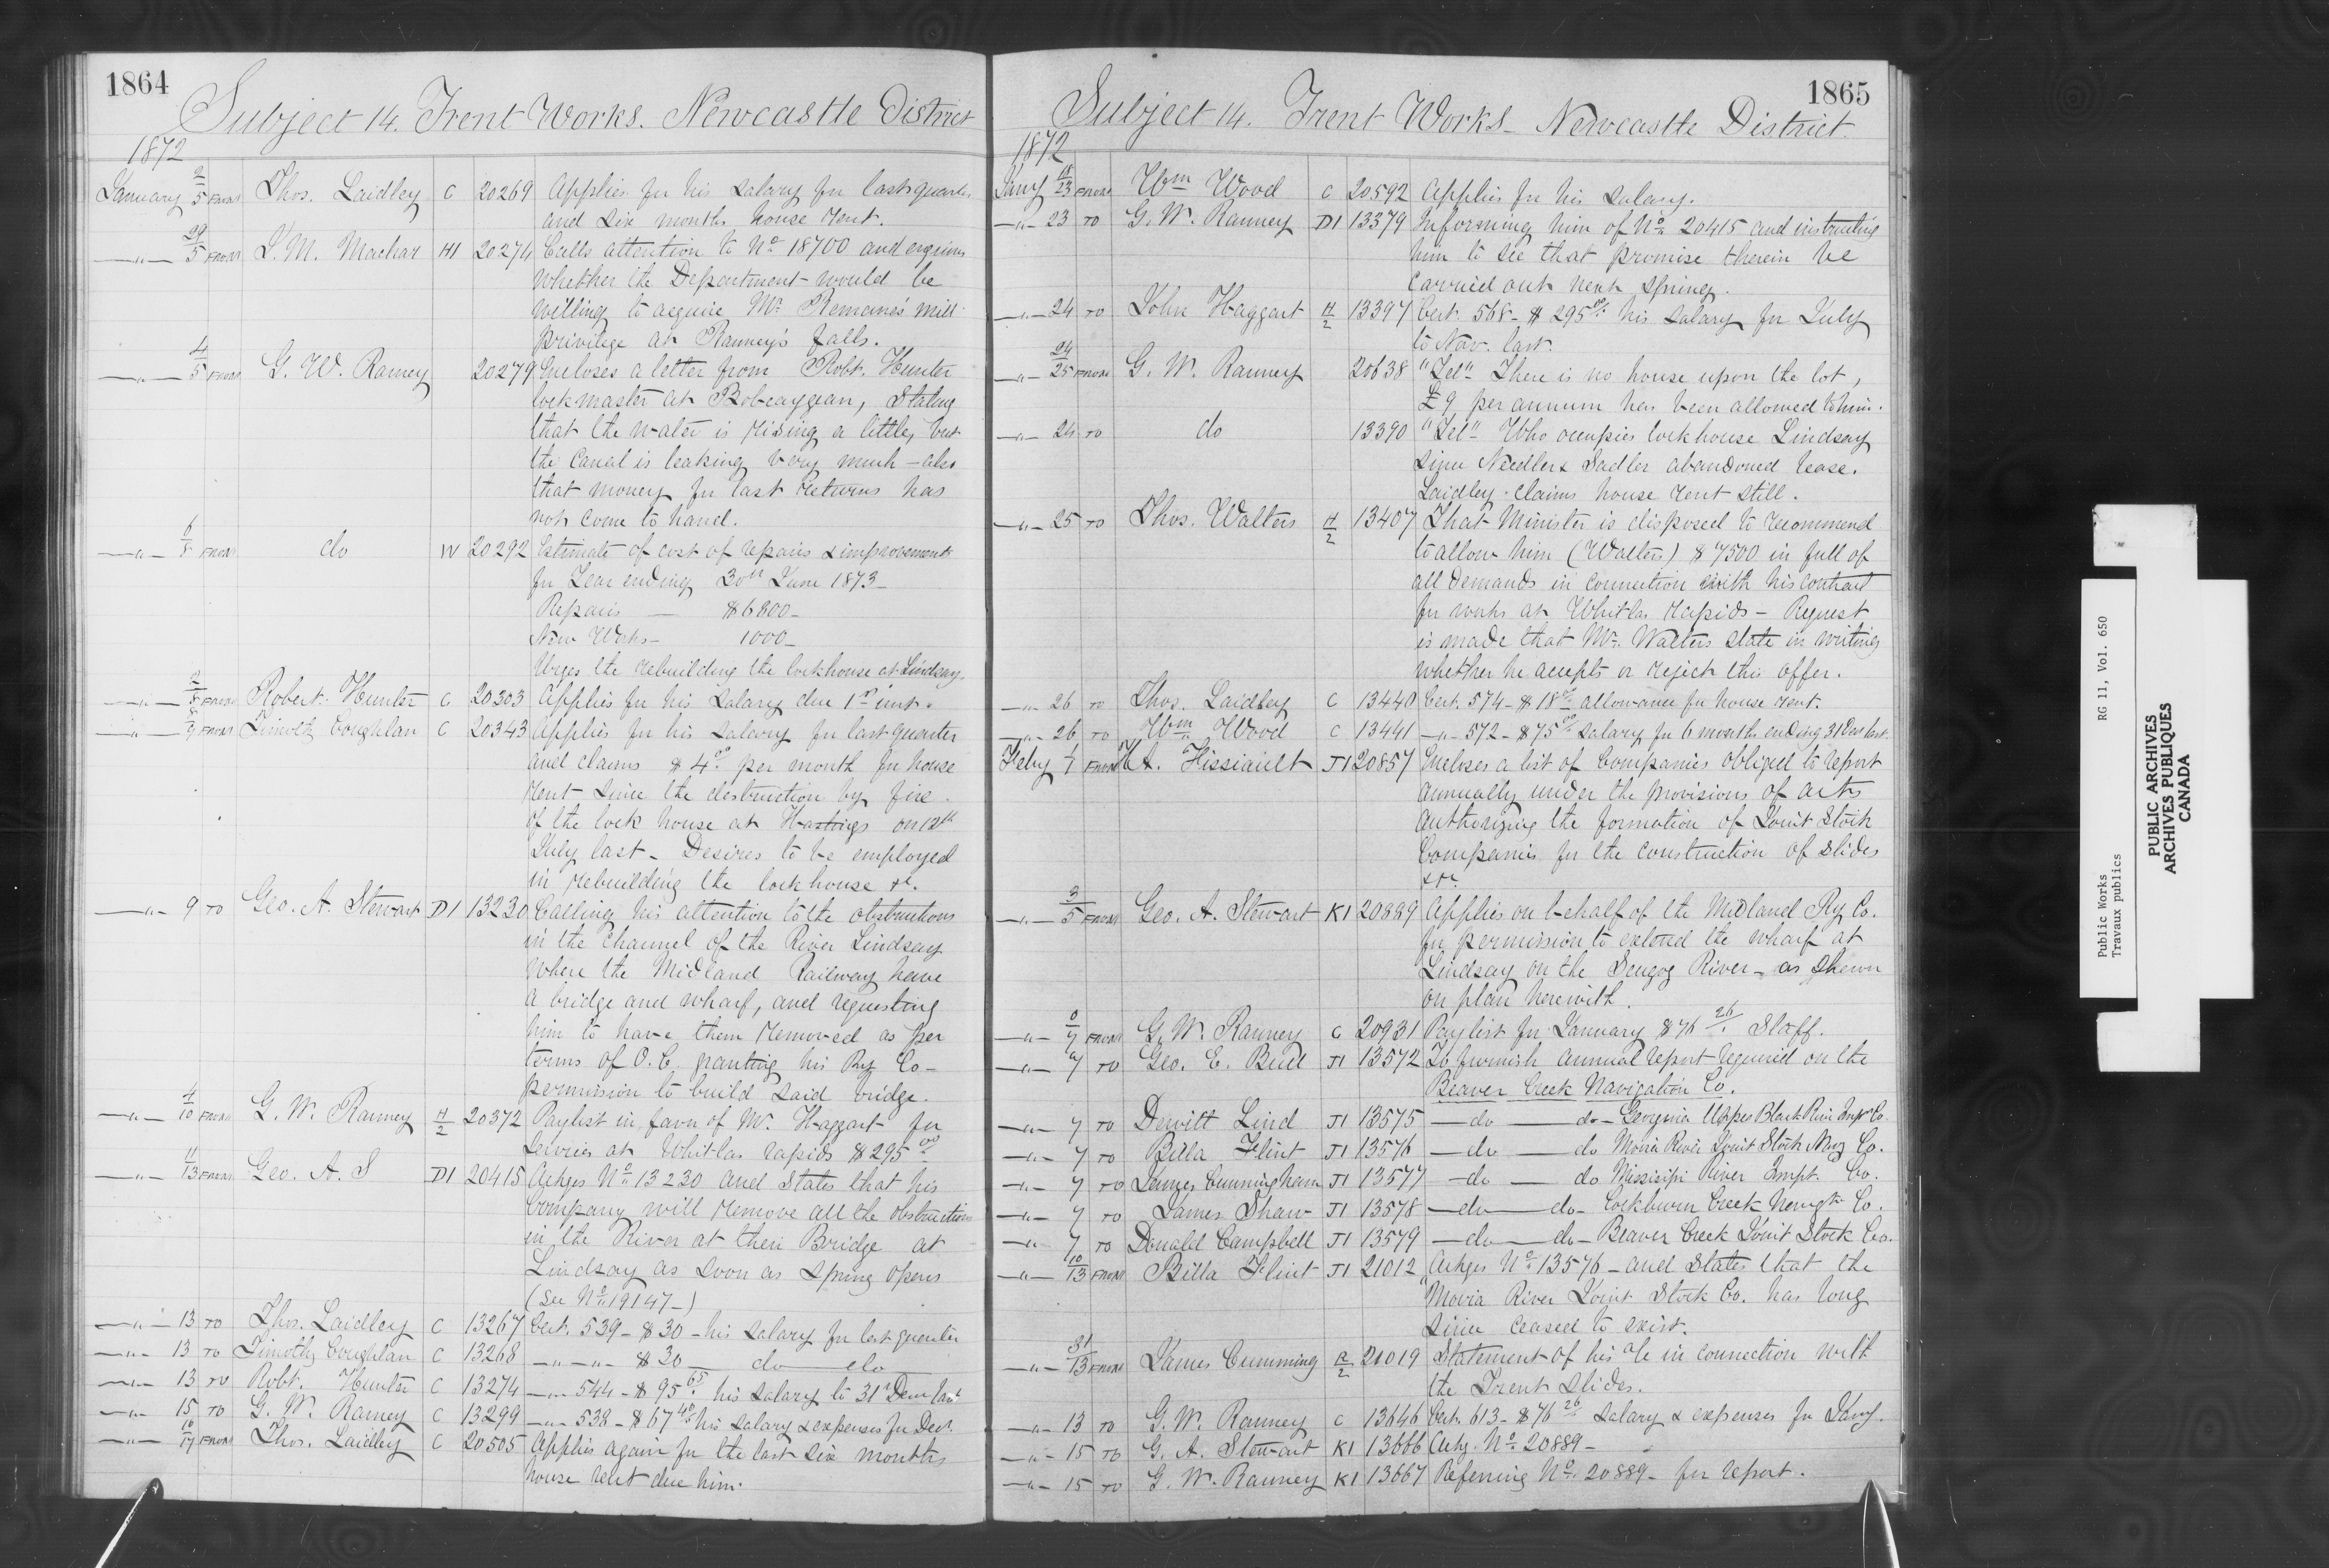 1864
Subject 14. Trent Works. Newcastle District
1872
January 2/5 FROM Thos. Laidley C 20269 Applies for his salary for last quarter
and six months house rent.
—"— 29/5 FROM T. M. Machar H1 20274 Calls attention to No. 18700 and enquires
whether the Department would be
willing to acquire Mr. mill
privilege at Ranney's falls.
—"— 4/5 FROM G. W. Ranney 20279 Encloses a letter from Robt. Hunter
lockmaster at Bobcaygean, Stating
that the water is rising a little, but
the Canal is leaking very much — also
that money for last returns has
not come to hand.
—"— 6/8 FROM do W 20292 Estimate of cost of repairs & improvements
for Year ending 30th June 1873—
Repairs — $6800—
New Works— 1000—
Urges the rebuilding the lockhouse at Lindsay.
—"— 2/8 FROM Robert Hunter C 20303 Applies for his Salary due 1st inst.
—"— 8/9 FROM Timothy Coughlan C 20343 Applies for his salary for last quarter
and claims $4.00 per month for house
rent since the destruction by fire
of the lock house at Hastings on 12th
July last— Desires to be employed
in rebuilding the lockhouse &c.
—"— 9 TO Geo. A. Stewart D1 13230 Calling his attention to the obstructions
in the Channel of the River Lindsay
where the Midland Railway have
a bridge and wharf, and requesting
him to have them removed as per
terms of O.C. granting his Ry Co—
permission to build said bridge.
—"— 4/10 FROM G. W. Ranney H/2 20372 Paylist in favor of Mr. Haggart for
Services at Whitlas rapids $295.00
—"— 11/13 FROM Geo. A. S D1 20415 Ackges No. 13230 and States that his
Company will remove all the obstructions
in the River at their Bridge at
Lindsay as soon as Spring opens
(See No. 19147—)
—"— 13 TO Thos. Laidley C 13267 Cert. 539— $30— his salary for last quarter
—"— 13 TO Timothy Coughlan C 13268 —"—"— $30— do do
—"— 13 TO Robt. Hunter C 13274 —"— 544— $95.65 his salary to 31st Decr last
—"— 15 TO G. W. Ranney C 13299 —"— 538— $67.40 his salary & expenses for Decr.
—"— 16/17 FROM Thos. Laidley C 20505 Applies again for the last six months
house rent due him.
1865
Subject 14. Trent Works— Newcastle District.
1872
Jany 18/23 FROM Wm Wood C 20592 Applies for his salary.
—"— 23 TO G. W. Ranney D1 13379 Informing him of No. 20415 and instructing
him to see that promise therein be
carried out next spring.
—"— 24 TO John Haggart H/2 13397 Cert. 568— $295.00 his salary for July
to Nov. last.
—"— 24/25 FROM G. W. Ranney 20638 "Tel" There is no house upon the lot,
£9 per annum has been allowed to him.
—"— 24 TO do 13390 "Tel" Who occupies lockhouse Lindsay
since Needler & Sadler abandoned lease.
Laidley claims house rent still.
—"— 25 TO Thos. Walters H/2 13407 That Minister is disposed to recommend
to allow him (Walters) $7500 in full of
all demands in connection with his contract
for works at Whitlas rapids— Request
is made that Mr. Walters state in writing
whether he accepts or rejects this offer.
—"— 26 TO Thos. Laidley C 13440 Cert. 574— $18.00 allowance for house rent.
—"— 26 TO Wm Wood C 13441 —"— 572— $75.00 salary for 6 months ending 31 Decr last.
Feby 1/1 FROM H. A. J1 20857 Encloses a list of Companies obliged to report
annually under the provisions of acts
authorizing the formation of Joint Stock
Companies for the construction of slides
&c.
—"— 3/5 FROM Geo. A. Stewart K1 20889 Applies on behalf of the Midland Ry Co.
for permission to extend the wharf at
Lindsay on the Scugog River— as shewn
on plan herewith.
—"— 6/7 FROM G. W. Ranney C 20931 Paylist for January $76.26 Staff.
—"— 7 TO Geo. E. J1 13572 To furnish annual report required on the
Beaver Creek Navigation Co.
—"— 7 TO Dewitt Lind J1 13575 —do— do— Georgina Upper Black River Impt Co.
—"— 7 TO Billa Flint J1 13576 —do— do Moira River Joint Stock Navg Co.
—"— 7 TO James Cunningham J1 13577 —do— do Missisipi River Impt. Co.
—"— 7 TO James Shaw J1 13578 —do— do— Cockburn Creek Navigtn Co.
—"— 7 TO Donald Campbell J1 13579 —do— do— Beaver Creek Joint Stock Co.
—"— 10/13 FROM Billa Flint J1 21012 Ackges No. 13576— and States that the
Moira River Joint Stock Co. has long
since ceased to exist.
—"— 31/13 FROM James Cumming R/2 21019 Statement of his a/c in connection with
the Trent Slides.
—"— 13 TO G. W. Ranney C 13646 Cert. 613— $76.26 salary & expenses for Jany.
—"— 15 TO G. A. Stewart K1 13666 Ackg. No. 20889—
—"— 15 TO G. W. Ranney K1 13667 Referring No. 20889— for report.
Public Works
Travaux publics
RG 11, Vol. 650
PUBLIC ARCHIVES
ARCHIVES PUBLIQUES
CANADA